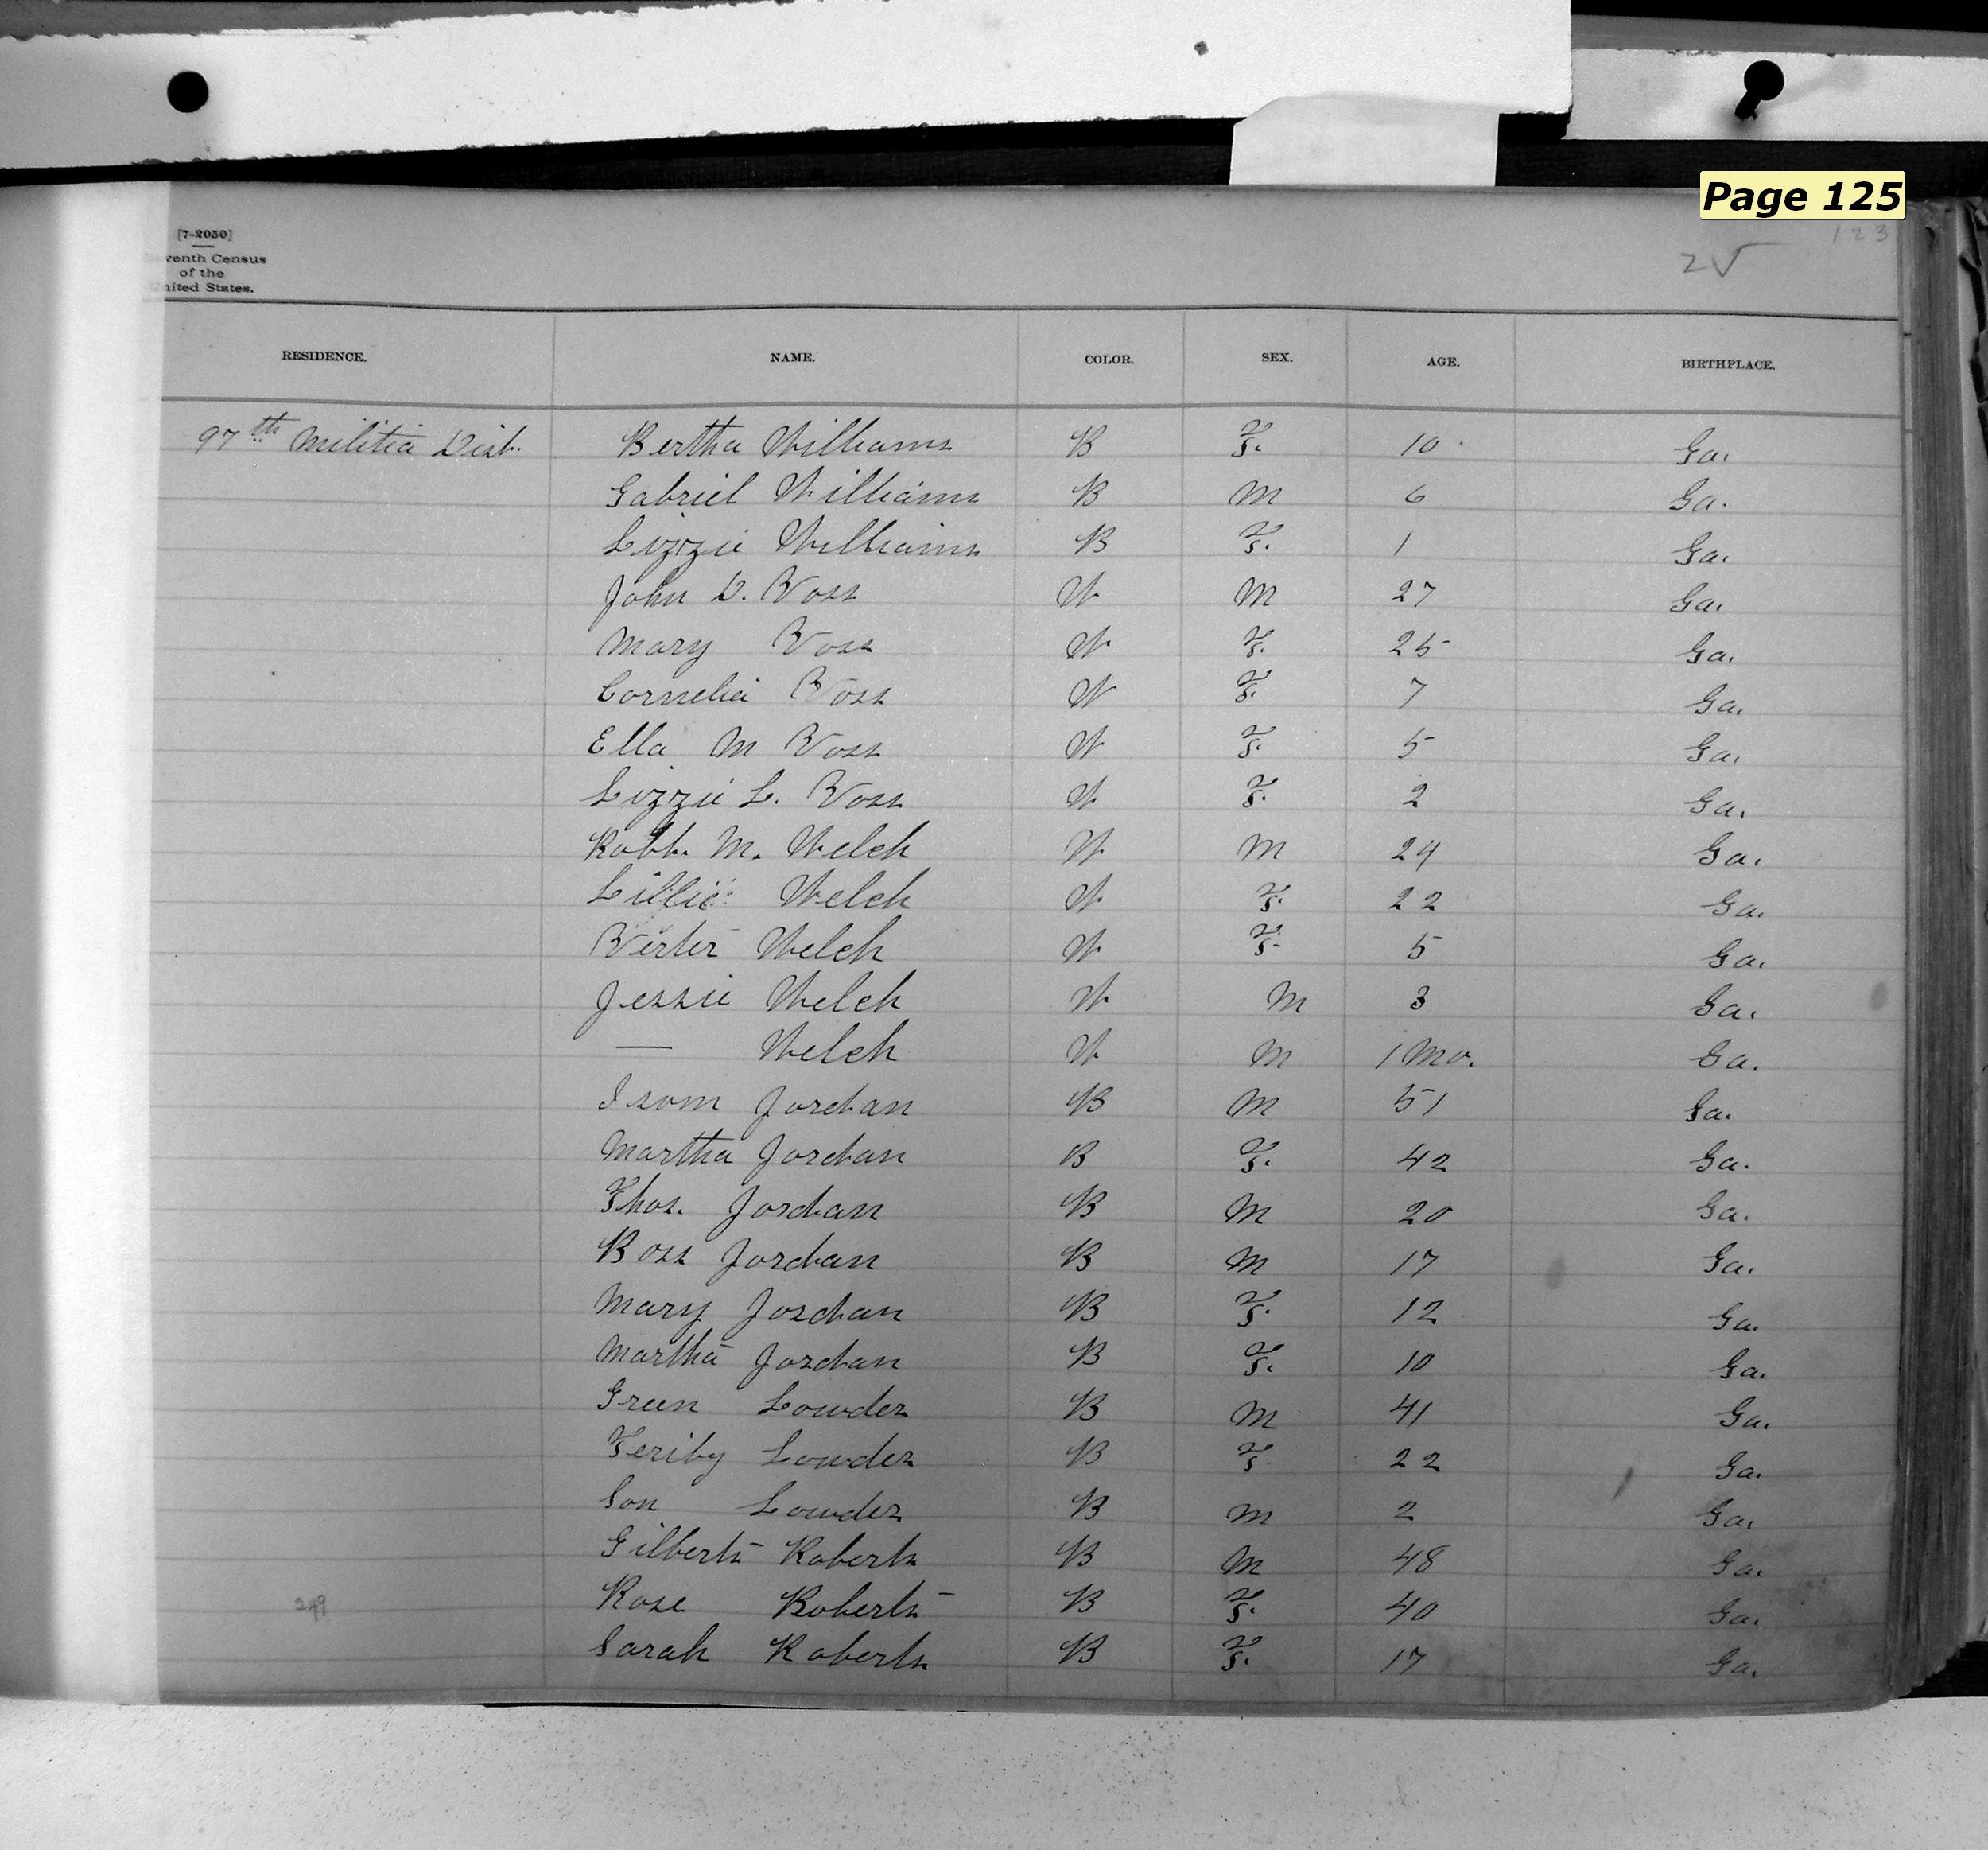 Page 125
123
2√
[7-2050]
venth Census
of the
nited States.
RESIDENCE. NAME. COLOR. SEX. AGE. BIRTHPLACE.
97th Militia Dist. Bertha Williams B F. 10 Ga.
Gabriel Williams B M 6 Ga.
Lizzie Williams B F. 1 Ga.
John D. Voss W M 27 Ga.
Mary Voss W F. 25 Ga.
Cornelia Voss W F. 7 Ga.
Ella M Voss W F. 5 Ga.
Lizzie L. Voss W F. 2 Ga.
Robt. M. Welch W M 24 Ga.
Lillie Welch W F. 22 Ga.
Welch W F. 5 Ga.
Jessie Welch W M 3 Ga.
— Welch W M 1 Mo. Ga.
Isom Jordan B M 51 Ga.
Martha Jordan B F. 42 Ga.
Thos. Jordan B M 20 Ga.
Boss Jordan B M 17 Ga.
Mary Jordan B F. 12 Ga.
Martha Jordan B F. 10 Ga.
Green Lowder B M 41 Ga.
Feriby Lowder B F. 22 Ga.
Son Lowder B M 2 Ga.
Gilbert Roberts B M 48 Ga.
249 Rose Roberts B F. 40 Ga.
Sarah Roberts B F. 17 Ga.